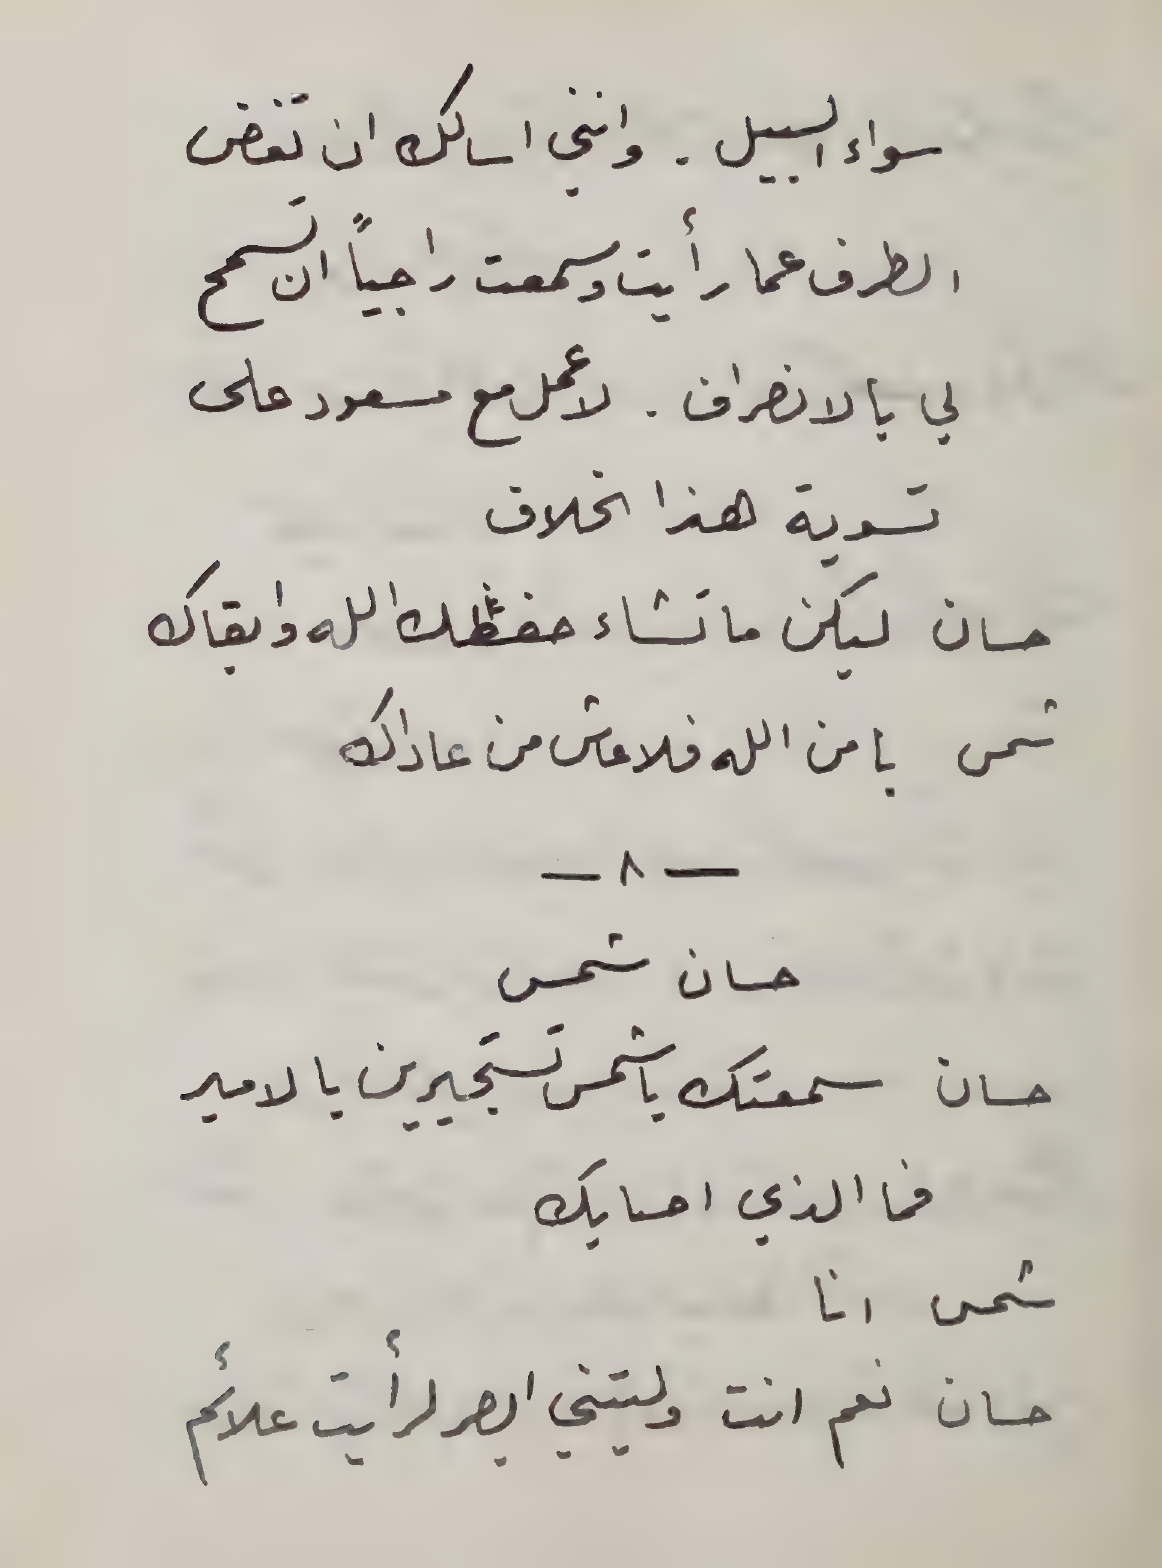 سواء السبيل . وانني اسالك ان تغض
الطرف عما رأيت وسمعت راجياً ان تسمح
لي بالانصراف . لاعمل مع مسعود على
تسوية هذا الخلاف
حسان ليكن ما تشاء حفظك الله وابقاك
شمس بامن الله فلا عاش من عاداك
— ٨ —
حسان شمس
حسان سمعتك يا شمس تستجيرين بالامير
فما الذي اصابك
شمس انا
حسان نعم انت وليتني ابصر لرأيت علائم